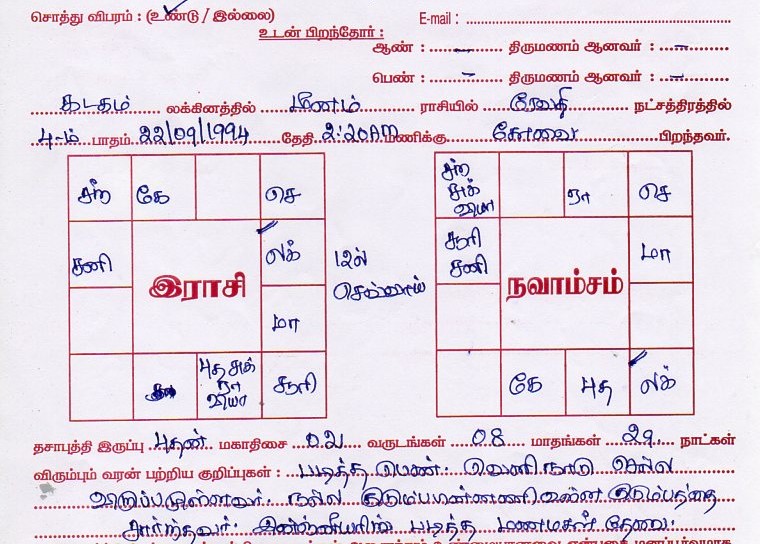 சொத்து விபரம் : (உண்டு / இல்லை) E-mail :
உடன் பிறந்தோர் :
ஆண் : – திருமணம் ஆனவர் : –
பெண் : – திருமணம் ஆனவர் : –
கடகம் லக்கினத்தில் மீனம் ராசியில் ரேவதி நட்சத்திரத்தில்
4-ம் பாதம் 22/09/1994 தேதி 2:20AM மணிக்கு கோவை பிறந்தவர்.
சந் கே செ
சனி லக்
இராசி
12ல்
செவ்வாய்
மா
புத சுக்
ரா
வியா
சூரி
சந்
சுக்
வியா
ரா செ
சூரி
சனி
மா
நவாம்சம்
கே புத லக்
தசாபுத்தி இருப்பு புதன் மகாதிசை 02 வருடங்கள் 08 மாதங்கள் 29 நாட்கள்
விரும்பும் வரன் பற்றிய குறிப்புகள் : படித்த பெண். வெளிநாடு செல்ல
விருப்பமுள்ளவர். நல்ல குடும்ப பின்னணி உள்ள குடும்பத்தை
சார்ந்தவர். இன்ஜினியரிங் படித்த மணமகள் தேவை.